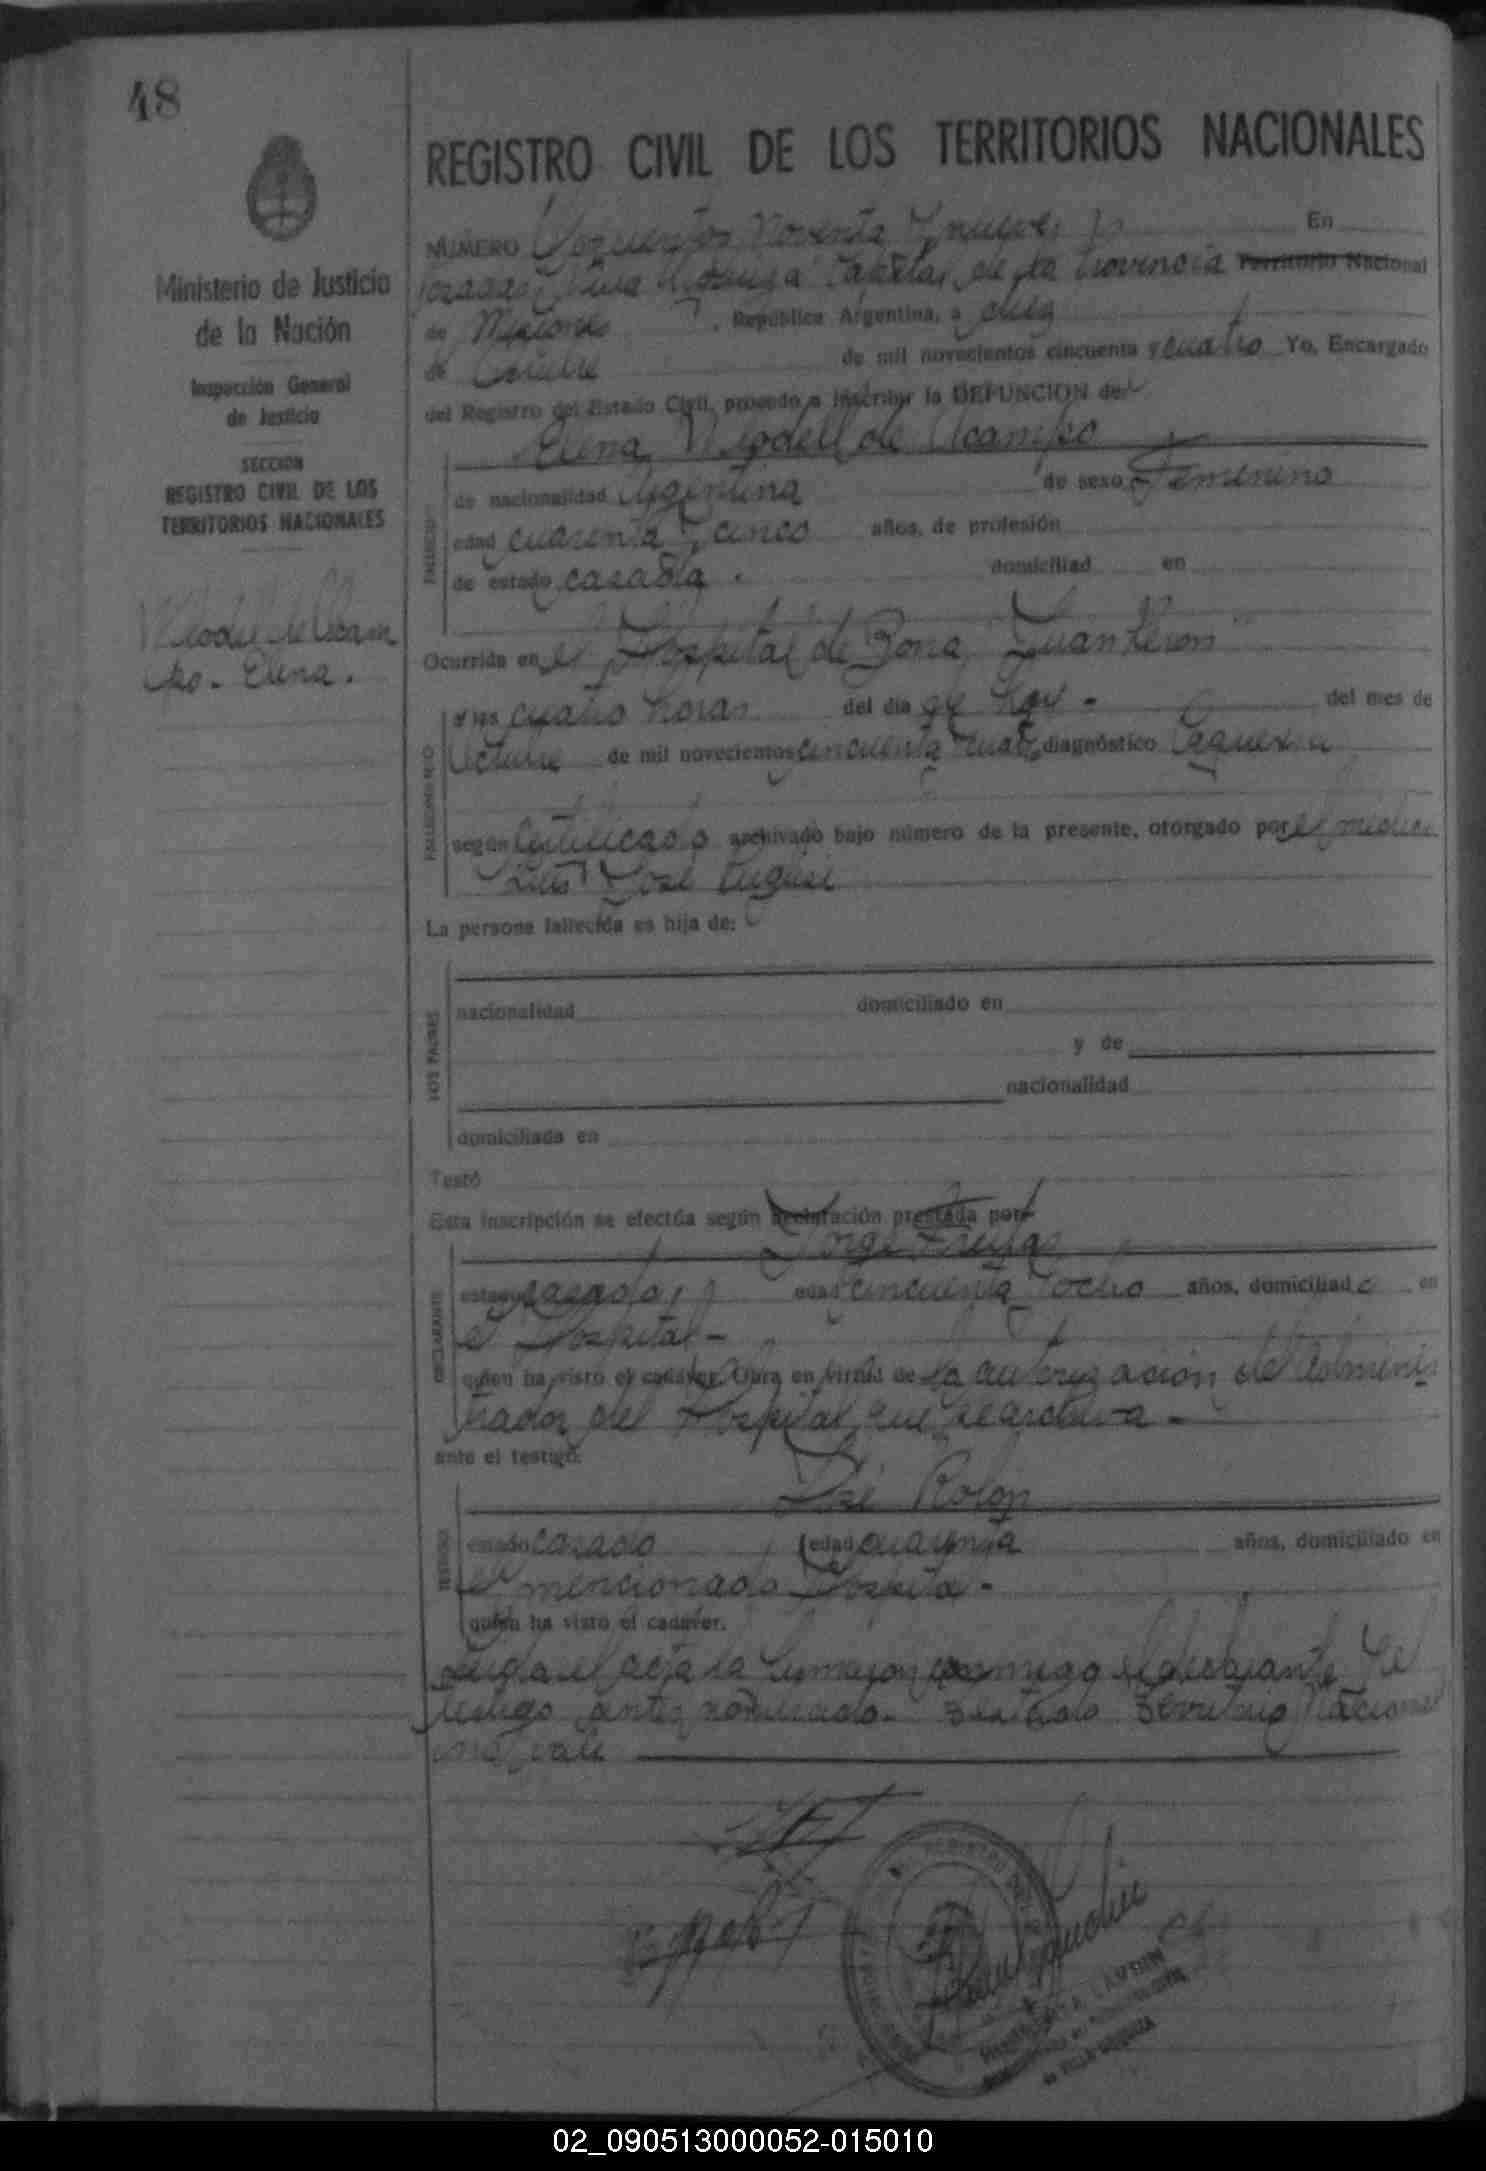 48
REGISTRO CIVIL DE LOS TERRITORIOS NACIONALES
Ministerio de Justicia
de la Nación
Inspección General
de Justicia
SECCION
REGISTRO CIVIL DE LOS
TERRITORIOS NACIONALES
de Ocam
po. Elena.
NUMERO Doscientos noventa y nueve En
Posadas, Capital de la Provincia Territorio Nacional
de Misiones, República Argentina, a diez
de Octubre de mil novecientos cincuenta y cuatro Yo, Encargado
del Registro del Estado Civil, procedo a inscribir la DEFUNCION de:
Elena de Ocampo
FALLECIDO
de nacionalidad Argentina de sexo Femenino
edad cuarenta y cinco años, de profesión
de estado casada. domiciliad en
Ocurrida en el Hospital de Zona "Juan Perón"
FALLECIMIENTO
a las cuatro horas del día de hoy - del mes de
Octubre de mil novecientos cincuenta y cuatro diagnóstico Caquexia
según certificado archivado bajo número de la presente, otorgado por el médico
Luis José
La persona fallecida es hija de:
LOS PADRES
nacionalidad domiciliado en
y de
nacionalidad
domiciliada en
Testó
Esta inscripción se efectúa según declaración prestada por:
Jorge
DECLARANTE
estado casado, edad cincuenta y ocho años, domiciliado en
el Hospital -
quien ha visto el cadáver. Obra en virtud de la autorización del Adminis
trador del Hospital que se archiva -
ante el testigo:
José Rolón
TESTIGO
estado casado edad cuarenta años, domiciliado en
el mencionado Hospital -
quien ha visto el cadáver.
Leída el acta la firmaron conmigo el declarante y el
testigo antes nombrado. Testado Territorio Nacional
no vale
02_090513000052-015010